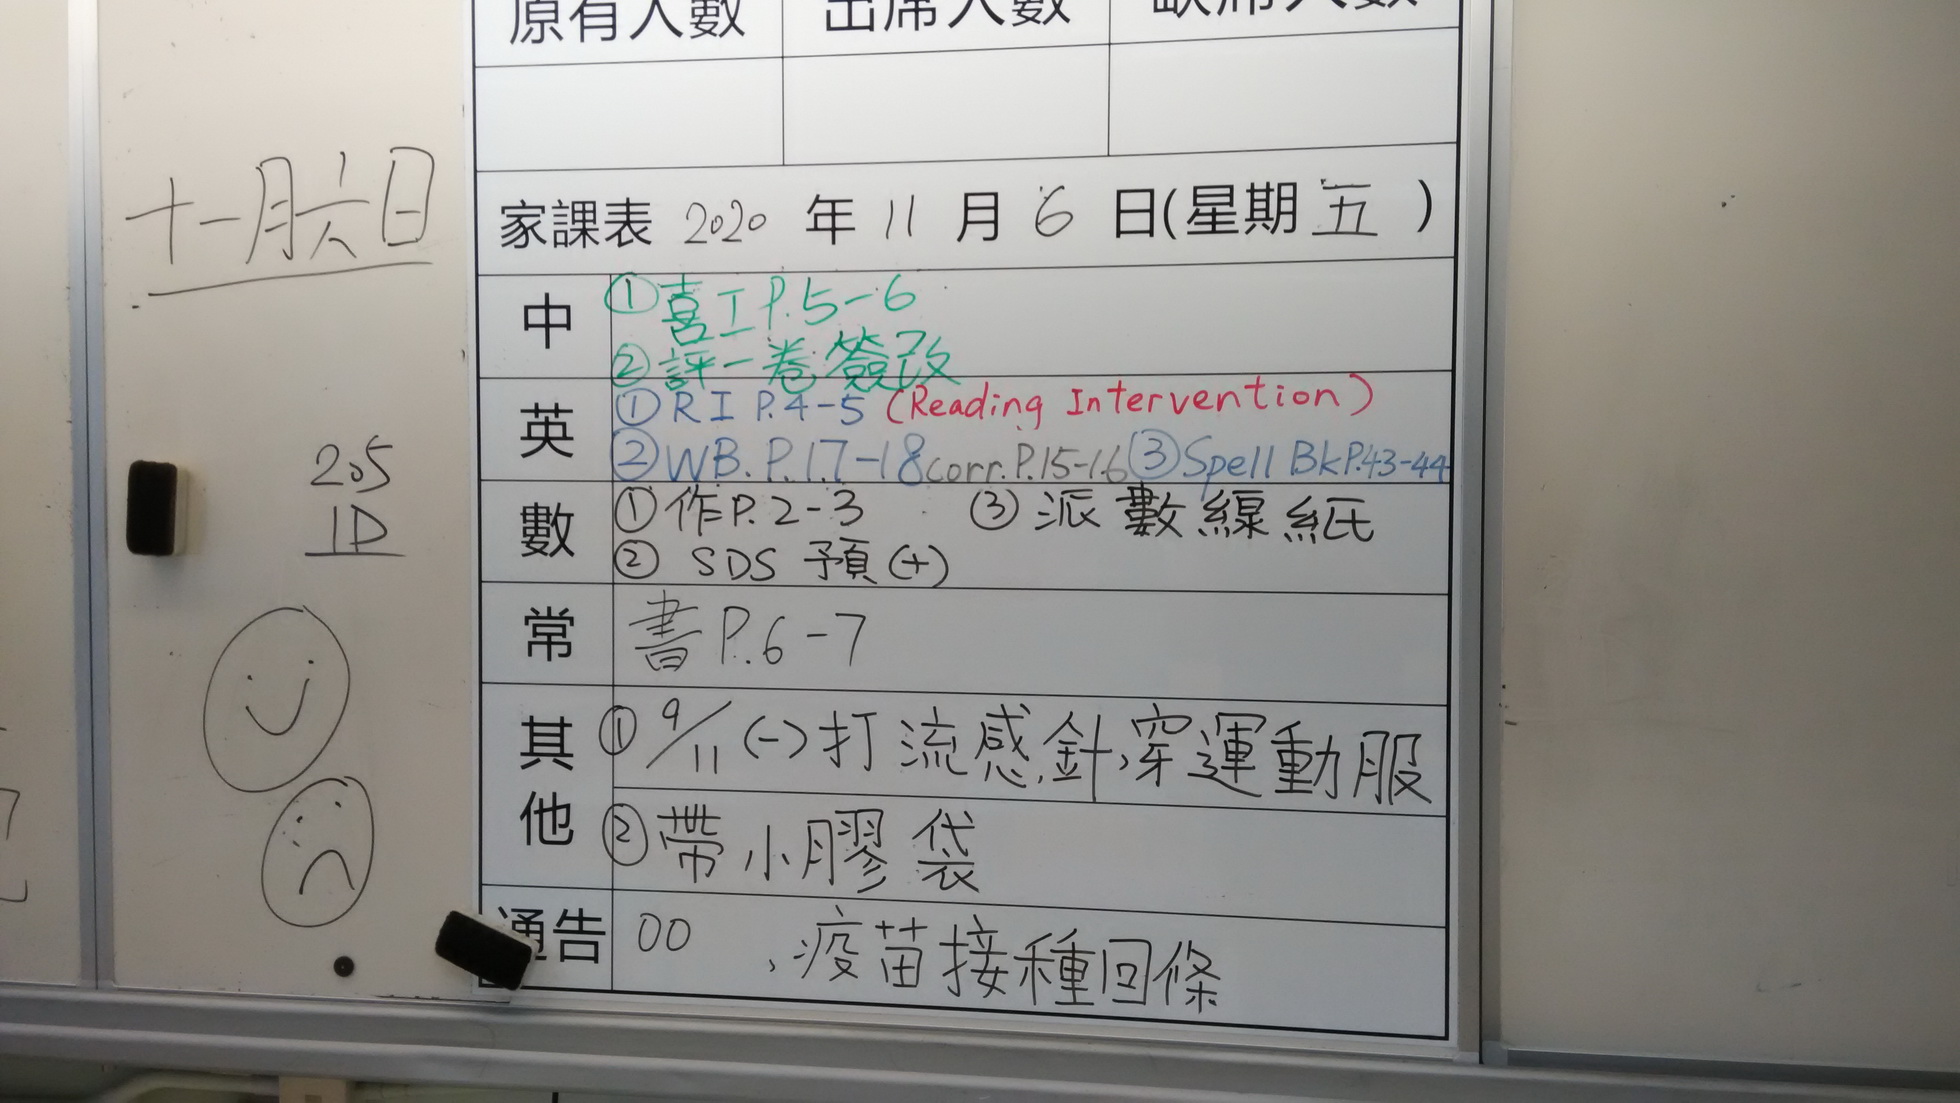 原有人數 出席人數 缺席人數
十一月六日
家課表 2020 年 11 月 6 日(星期 五 )
中 ①喜工P.5-6
②評一卷簽改
英 ①RI P.4-5 (Reading Intervention)
②WB. P.17-18 corr.P.15-16 ③Spell Bk P.43-44
205
1D
數 ①作P.2-3 ③派數線紙
② SDS 預(+)
常 書P.6-7
其他 ①9/11(一)打流感針,穿運動服
②帶小膠袋
通告 00 、疫苗接種回條